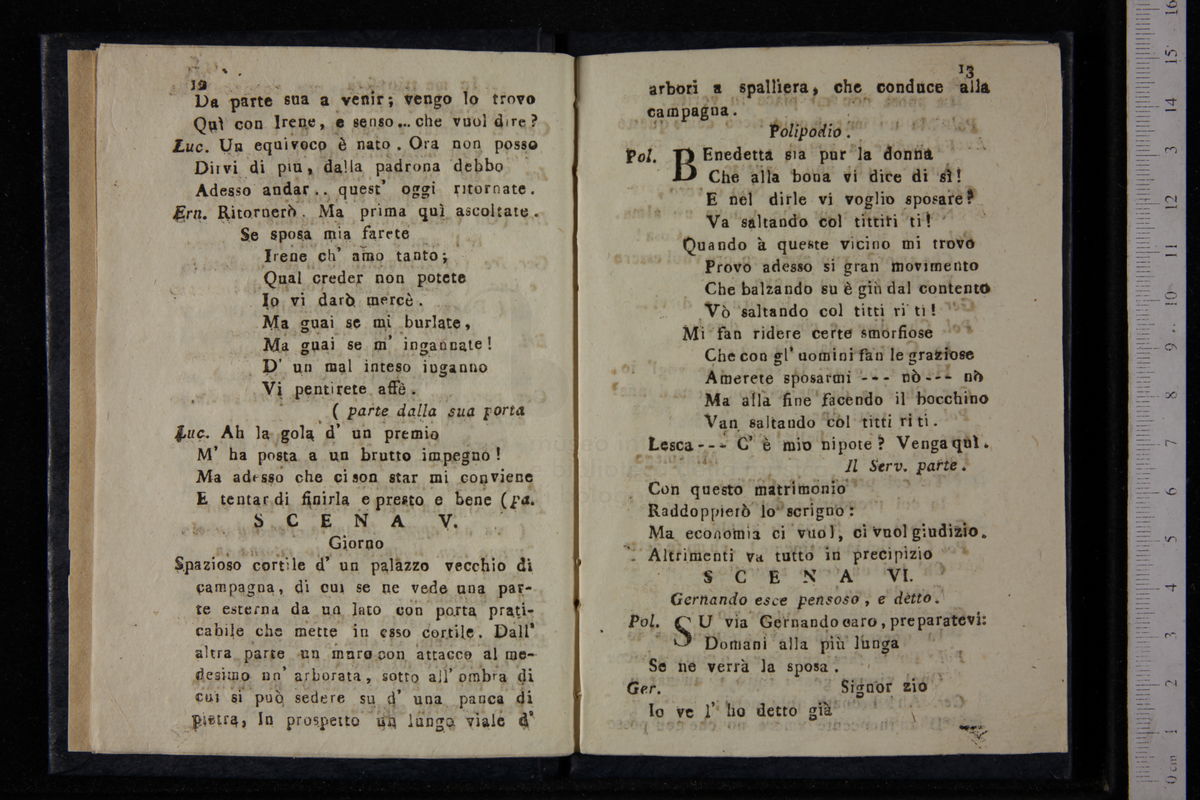 12
Da parte sua a venir; vengo lo trovo
Quì con Irene, e senso... che vuol dire?
Luc. Un equivoco è nato. Ora non posso
Dirvi di più, dalla padrona debbo
Adesso andar.. quest' oggi ritornate.
Ern. Ritornerò. Ma prima quì ascoltate.
Se sposa mia farete
Irene ch' amo tanto;
Qual creder non potete
Io vi darò mercè.
Ma guai se mi burlate,
Ma guai se m' ingannate!
D' un mal inteso inganno
Vi pentirete affè.
( parte dalla sua porta
Luc. Ah la gola d' un premio
M' ha posta a un brutto impegno!
Ma adesso che ci son star mi conviene
E tentar di finirla e presto e bene (pa.
SCENA V.
Giorno
Spazioso cortile d' un palazzo vecchio di
campagna, di cui se ne vede una par-
te esterna da un lato con porta prati-
cabile che mette in esso cortile. Dall'
altra parte un muro con attacco al me-
desimo un' arborata, sotto all' ombra di
cui si può sedere su d' una panca di
pietra, In prospetto un lungo viale d'
13
arbori a spalliera, che conduce alla
campagna.
Polipodio.
Pol. BEnedetta sia pur la donna
Che alla bona vi dice di sì!
E nel dirle vi voglio sposare?
Va saltando col tittiri ti!
Quando à queste vicino mi trovo
Provo adesso si gran movimento
Che balzando su è giù dal contento
Vò saltando col titti ri ti!
Mi fan ridere certe smorfiose
Che con gl' uomini fan le graziose
Amerete sposarmi --- nò --- nò
Ma alla fine facendo il bocchino
Van saltando col titti ri ti.
Lesca --- C' è mio nipote? Venga quì.
Il Serv. parte.
Con questo matrimonio
Raddoppierò lo scrigno:
Ma economia ci vuol, ci vuol giudizio.
Altrimenti va tutto in precipizio
SCENA VI.
Gernando esce pensoso, e detto.
Pol. SU via Gernando caro, preparatevi:
Domani alla più lunga
Se ne verrà la sposa.
Ger. Signor zio
Io ve l' ho detto già